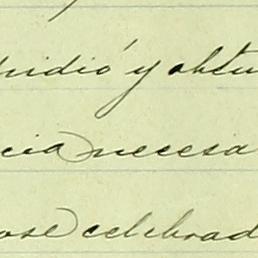 pidió y obtu
cia necesa
ose celebrad